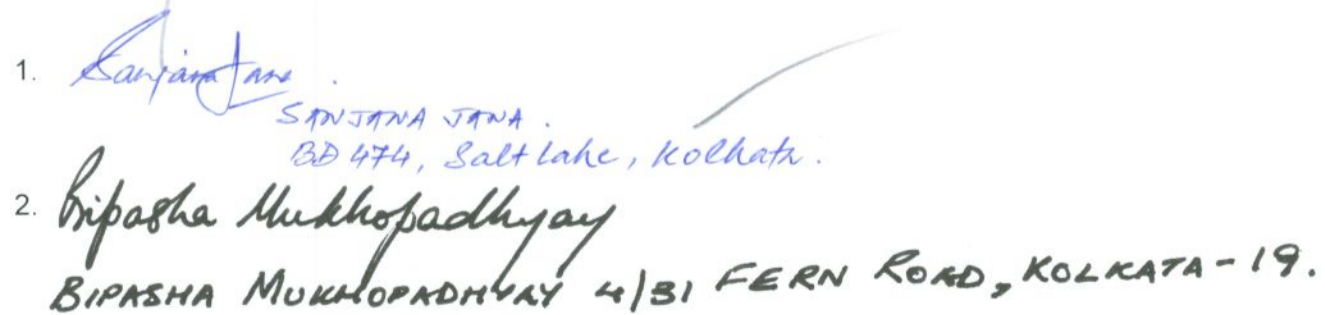 1. Sanjana Jana.
SANJANA JANA.
BD 474, Salt Lake, Kolkata.
2. Bipasha Mukhopadhyay
BIPASHA MUKHOPADHYAY 4/31 FERN ROAD, KOLKATA-19.